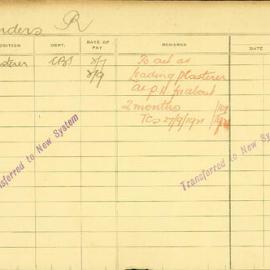 nders R
OSITION DEPT. RATE OF PAY REMARKS DATE
asterer CBS 8/7 To act as
8/9 Leading Plasterer
at P.H. for about
2 months
TCs
nsferred to New System
Transferred to New System